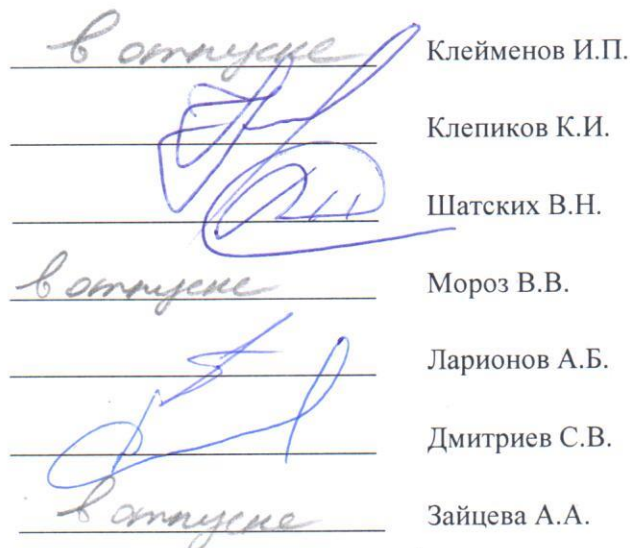 в отпуске Клейменов И.П.
Клепиков К.И.
Шатских В.Н.
в отпуске Мороз В.В.
Ларионов А.Б.
Дмитриев С.В.
в отпуске Зайцева А.А.